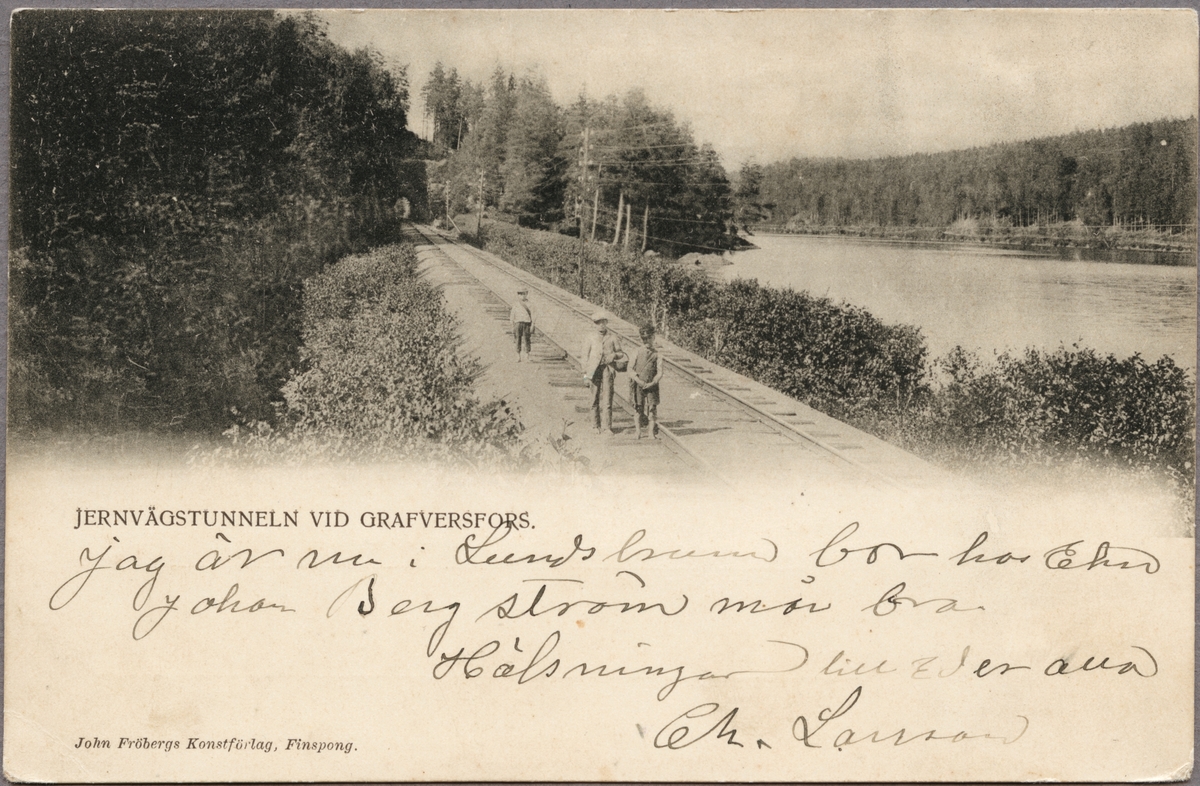 JERNVÄGSTUNNELN VID GRAFVERSFORS.
jag är nu i Lundsbrunn bor hos
Johan Bergström mår bra
Hälsningar till Eder alla
Ch. Larsson
John Fröbergs Konstförlag, Finspong.